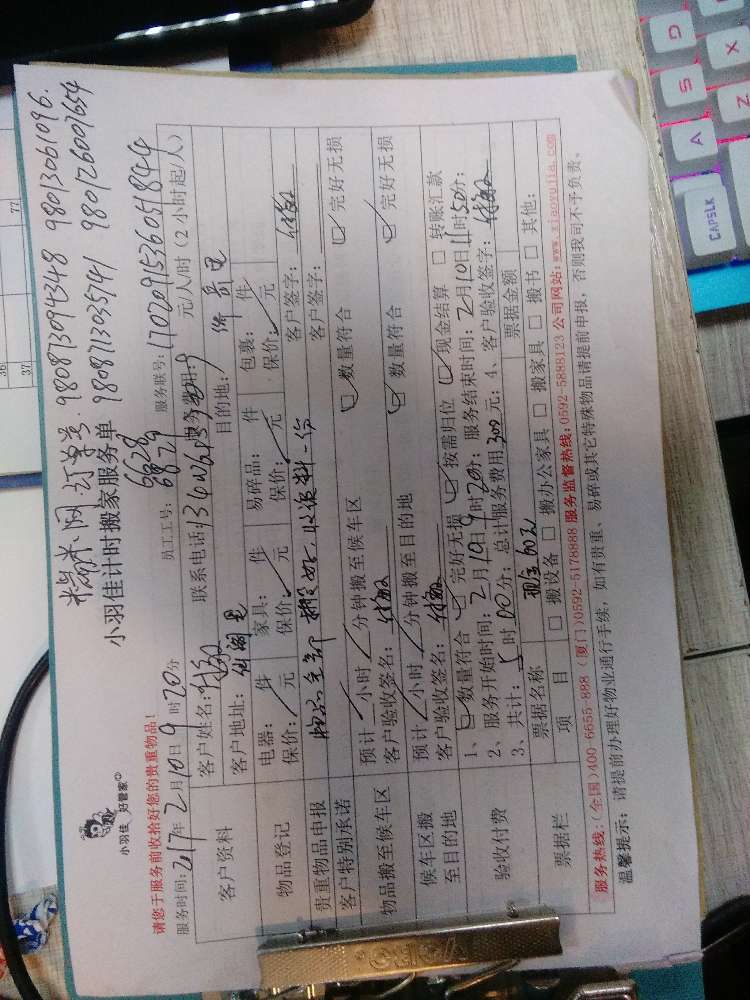 糯米网 订单号:980813094348 98013061096.
9808113035741 980126009654
小羽佳
好管家
小羽佳计时搬家服务单
请您于服务前收拾好您的贵重物品!
6628
6879
服务时间:2017年2月10日9时20分 员工工号: 服务联号:1702091536051844
客户资料 客户姓名: 联系电话: 服务费用: 元/人/时(2小时起/人)
客户地址: 目的地:
物品登记 电器: 件 家具: 件 易碎品: 件 包裹: 件
保价: 元 保价: 元 保价: 元 保价: 元
贵重物品申报 客户签字:
客户特别承诺 客户签字:
物品搬至候车区 预计 小时 分钟搬至候车区 ☑数量符合 ☑完好无损
客户验收签名:
候车区搬至目的地 预计 小时 分钟搬至目的地 ☑数量符合 ☑完好无损
客户验收签名:
验收付费 1、☑数量符合 ☑完好无损 ☑按需归位 ☑现金结算 □转账汇款
2、服务开始时间:2月10日9时20分;服务结束时间:2月10日11时50分;
3、共计:5时00分;总计服务费用300元;4、客户验收签字:
票据栏 票据名称 现金60元 票据金额
项目 □搬设备 □搬办公家具 □搬家具 □搬书 □其他:
服务热线:(全国)400-6655-888 (厦门)0592-5178888 服务监督热线:0592-5888123 公司网站:www.xiaoyujia.com
温馨提示:请提前办理好物业通行手续,如有贵重、易碎或其它特殊物品请提前申报,否则我司不予负责。
37
36
77
CAPSLK
A
S
D
X